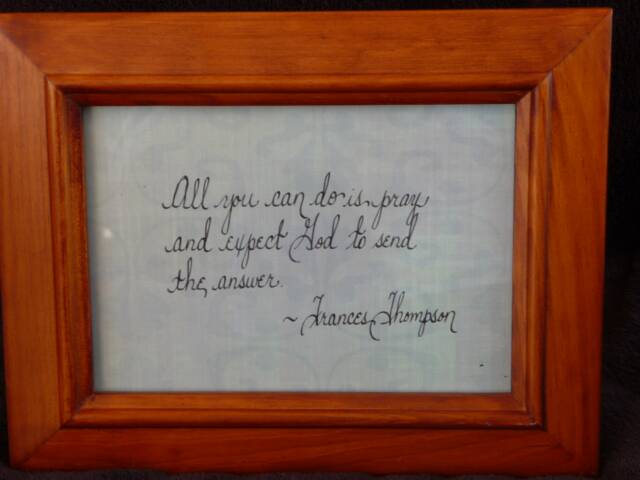 All you can do is pray
and expect God to send
the answer.
~ Frances Thompson